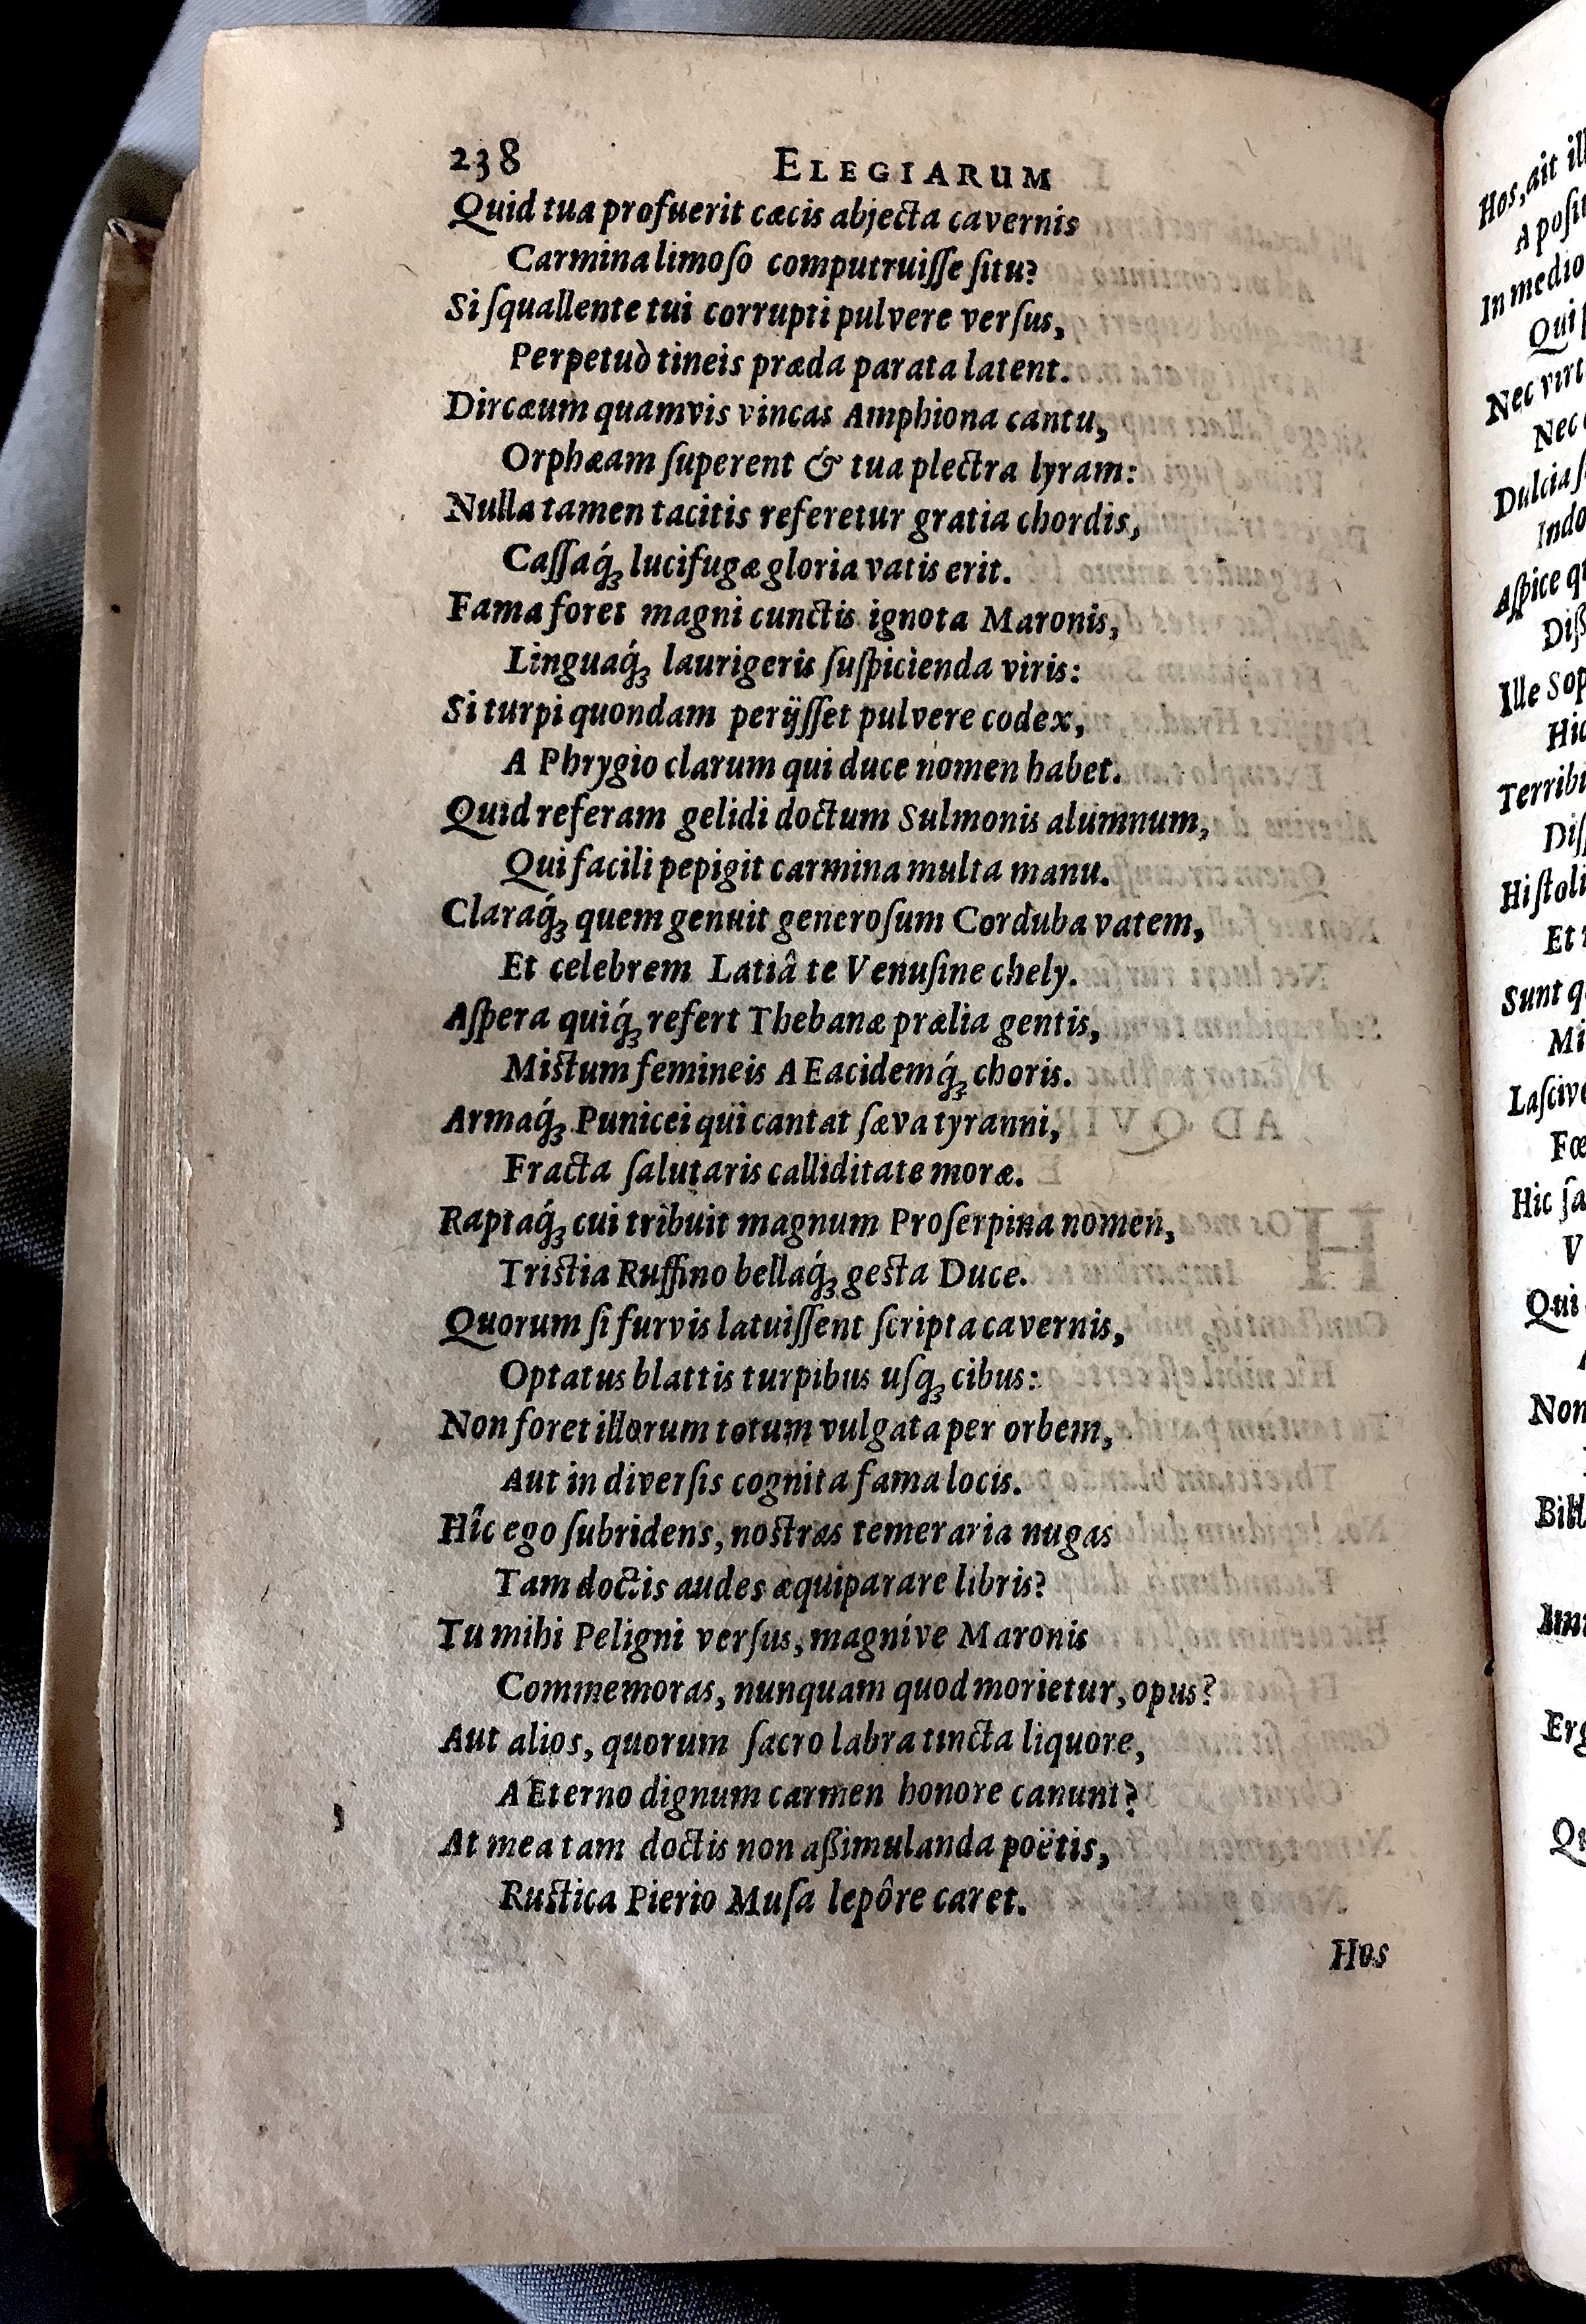 238 ELEGIARUM
Quid tua profuerit cæcis abjecta cavernis
Carmina limoſo computruiſſe ſitu?
Si ſquallente tui corrupti pulvere verſus,
Perpetuò tineis præda parata latent.
Dircæum quamvis vincas Amphiona cantu,
Orphæam ſuperent & tua plectra lyram:
Nulla tamen tacitis referetur gratia chordis,
Caſſaq́ꝫ lucifugæ gloria vatis erit.
Fama foret magni cunctis ignota Maronis,
Linguaq́ꝫ laurigeris ſuſpicienda viris:
Si turpi quondam perijſſet pulvere codex,
A Phrygio clarum qui duce nomen habet.
Quid referam gelidi doctum Sulmonis alumnum,
Qui facili pepigit carmina multa manu.
Claraq́ꝫ quem genuit generoſum Corduba vatem,
Et celebrem Latiâ te Venuſine chely.
Aſpera quiq́ꝫ refert Thebanæ prælia gentis,
Mistum femineis AEacidemq́ꝫ choris.
Armaq́ꝫ Punicei qui cantat ſæva tyranni,
Fracta ſalutaris calliditate moræ.
Raptaq́ꝫ cui tribuit magnum Proſerpina nomen,
Tristia Ruffino bellaq́ꝫ gesta Duce.
Quorum ſi furvis latuiſſent ſcripta cavernis,
Optatus blattis turpibus uſqꝫ cibus:
Non foret illorum totum vulgata per orbem,
Aut in diverſis cognita fama locis.
Hîc ego ſubridens, nostras temeraria nugas
Tam doctis audes æquiparare libris?
Tu mihi Peligni verſus, magníve Maronis
Commemoras, nunquam quod morietur, opus?
Aut alios, quorum ſacro labra tincta liquore,
AEterno dignum carmen honore canunt?
At mea tam doctis non aßimulanda poëtis,
Rustica Pierio Muſa lepôre caret.
Hos
Hos, ait
In medio
Nec
Nec
Dulcia
Aſpice
Ille
Sunt
Hic
Qui